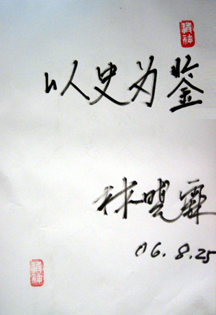 以史为鉴
林晓霖
06.8.25